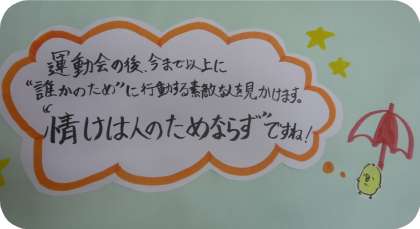 運動会の後、今まで以上に
“誰かのため”に行動する素敵な人を見かけます。
“情けは人のためならず”ですね！